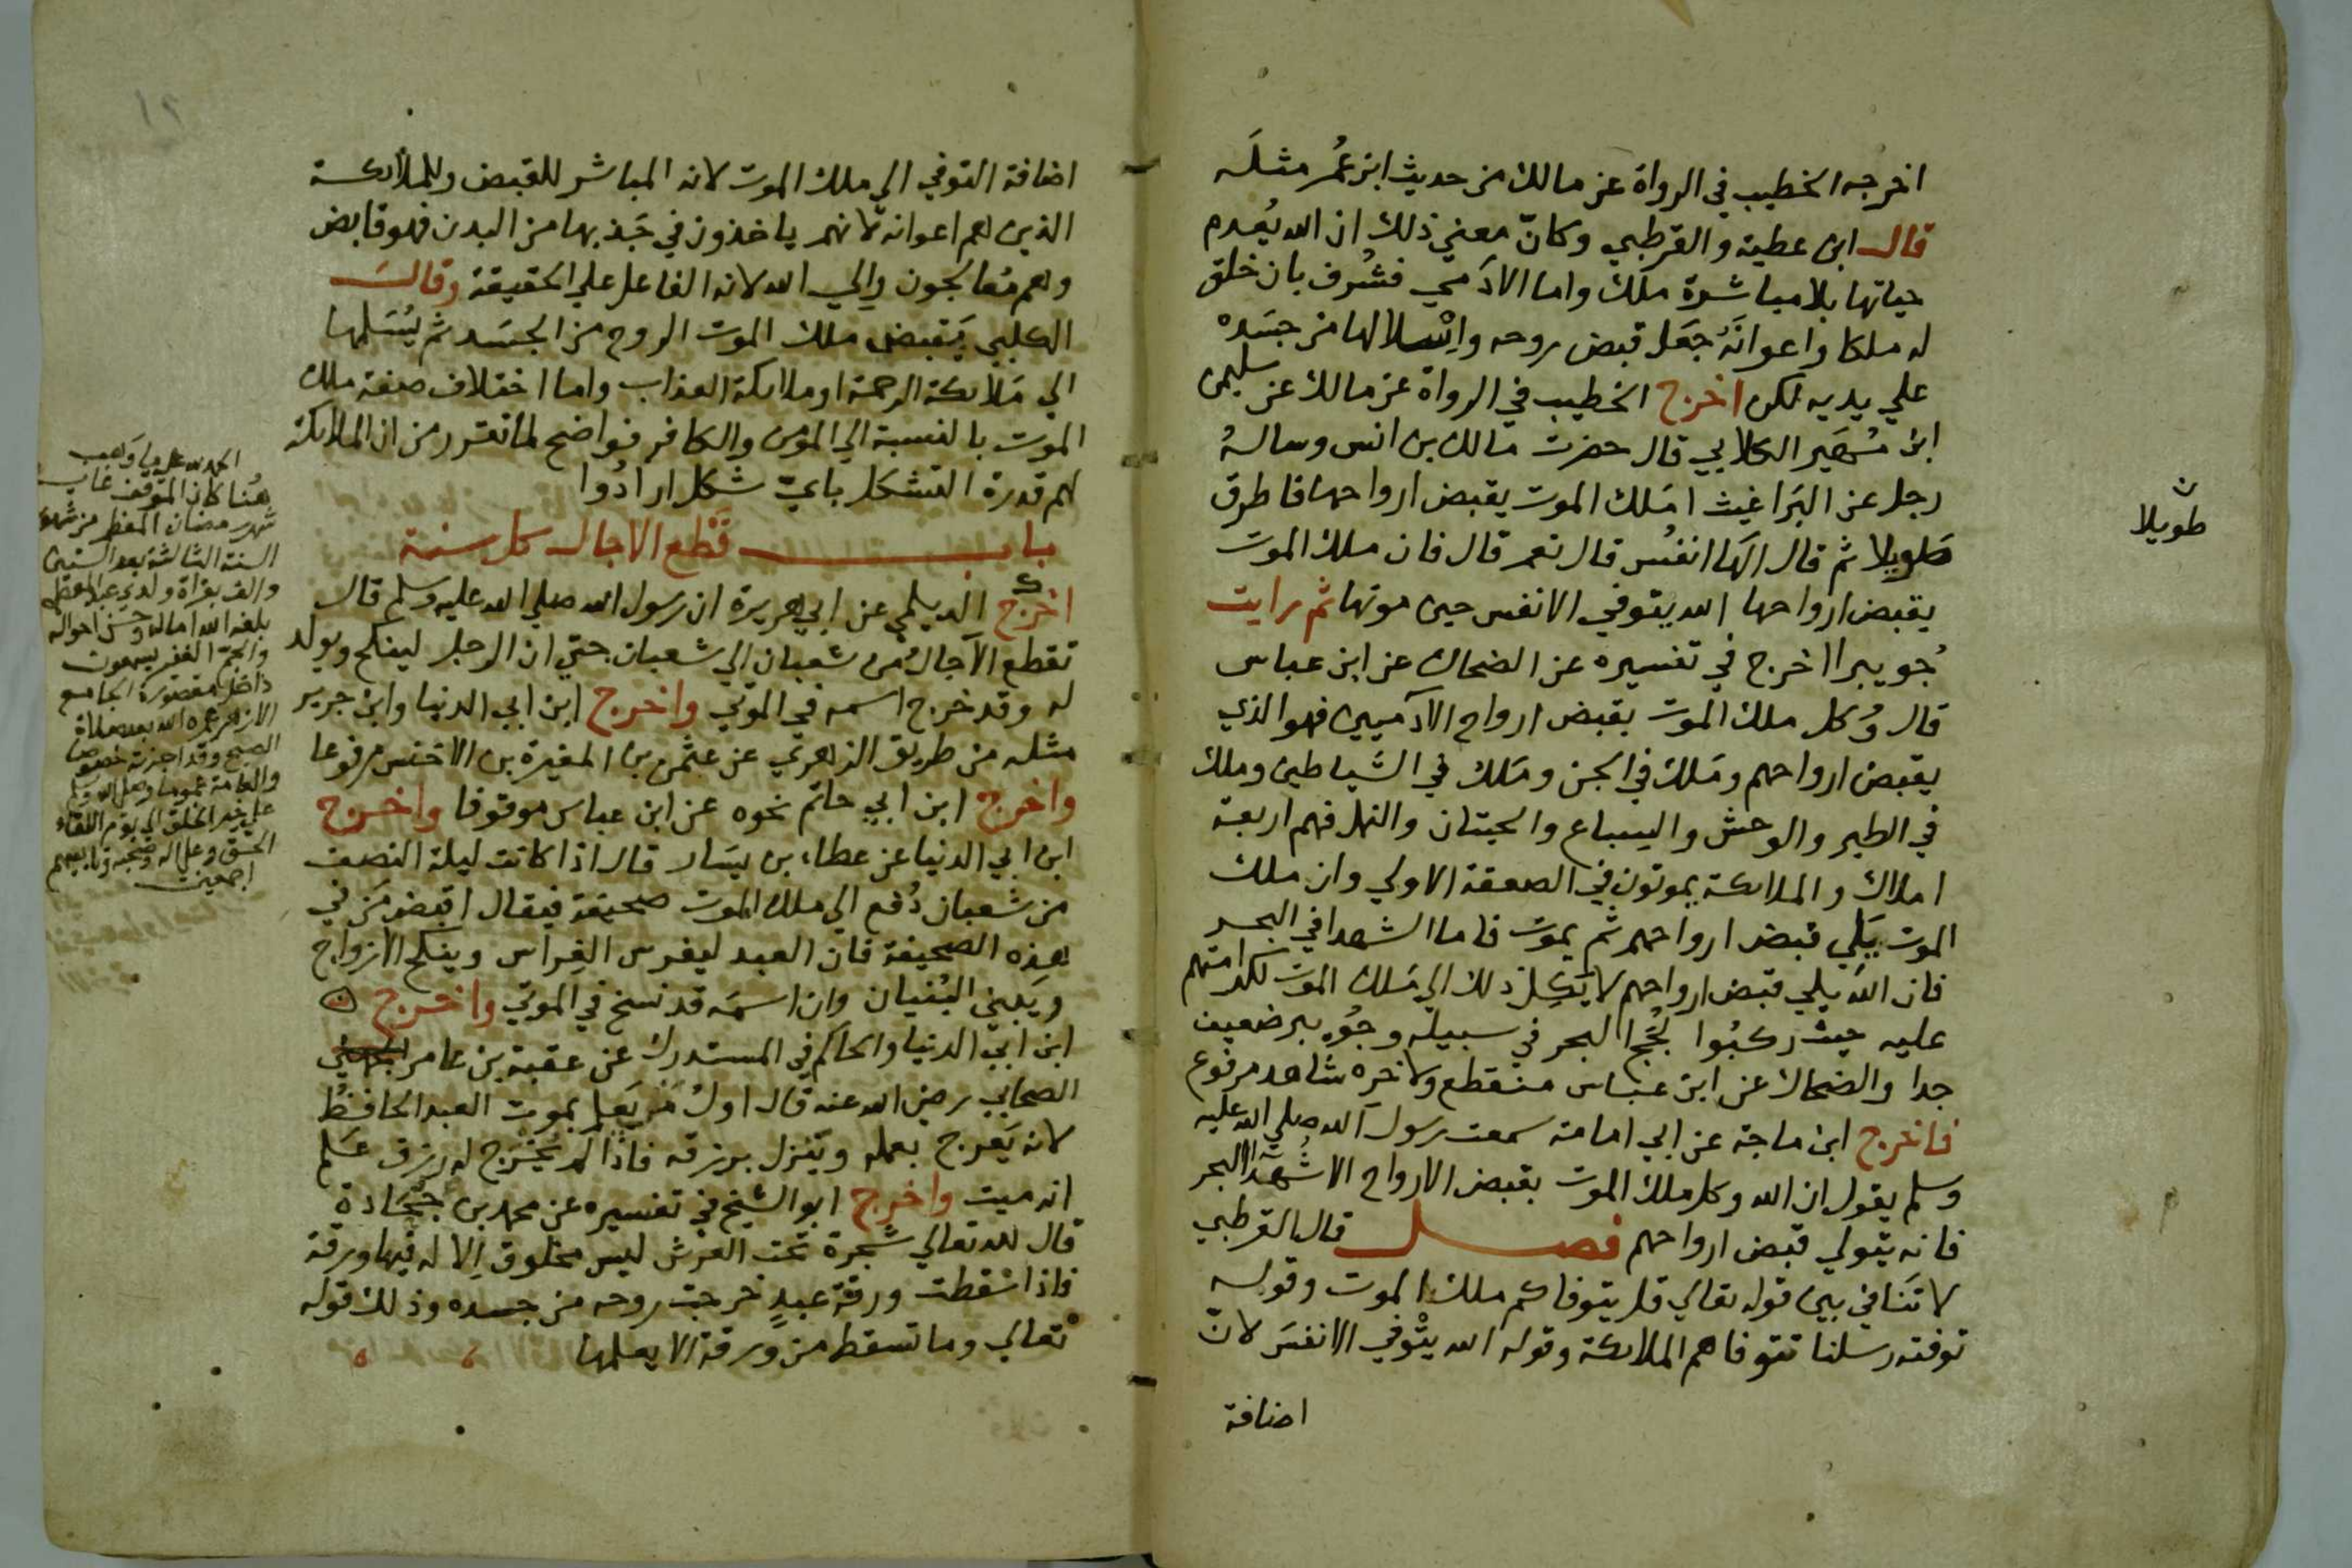 اخرجه الخطيب في الرواة عن مالك من حديث ابن عمر مثله
قال ابن عطية والقرطبي وكانّ معني ذلك ان الله يُعدم
حياتها بلا مباشرة ملك واما الادَمي فشُرف بان خلق
له ملكا واعوانَه جَعَل قبض روحه وانسلالها من جسَده
علي يديه لكن اخرج الخطيب في الرواة عن مالك عن سليمن
ابن مُهَير الكلابي قال حضرت مالك بن انس وساله
رجل عن البَراغيث امَلك الموت يقبض ارواحها فاطرق
طويلا ثم قال الَها انفُس قال نعم قال فان ملك الموت
يقبض ارواحها الله يتوفي الانفس حين موتها ثم رايت
جُويبرا اخرج في تفسيره عن الضحاك عن ابن عباس
قال وُكل ملك الموت بقبض ارواح الآدميين فهو الذي
يقبض ارواحهم ومَلك في الجن ومَلك في الشياطين وملك
في الطير والوحش والسباع والحيتان والنمل فهم اربعة
املاك والملائكة يموتون في الصعقة الاولي وان ملك
الموت يَلي قبض ارواحهم ثم يموت فاما الشهدا في البحر
فان الله يلي قبض ارواحهم لا يَكِل ذلك الي مَلك الموت لكرامتهم
عليه حيث ركبُوا لُجَج البحر في سبيله وجُويبر ضعيف
جدا والضحاك عن ابن عباس منقطع ولاخره شاهد مرفوع
فاخرج ابن ماجة عن ابي امامة سمعت رسول الله صلي الله عليه
وسلم يقول ان الله وكل ملك الموت بقبض الارواح الا شُهدَا البحر
فانه يتولي قبض ارواحهم فصل قال القرطبي
لا تنَافي بين قوله تعالي قل يتوفاكم ملك الموت وقوله
توفته رسلنا تتوفاهم الملائكة وقوله الله يتوفي الانفسَ لانّ
اضافة
ن
طويلا
١٢
اضافة التوفي الي ملك الموت لانه المباشر للقبض وللملائكة
الذين هم اعوانه لانهم ياخذون في جَذبها من البدن فهو قابض
وهم مُعالجون والي الله لانه الفاعل علي الحقيقة وقال
الكلبي يَقبض ملك الموت الروح من الجسَد ثم يُسَلمها
الي مَلائكة الرحمة او ملائكة العذاب واما اختلاف صفة ملك
الموت بالنسبة الي المؤمن والكافر فواضح لما تقرر من ان الملائكة
لهم قدرة التشكل بايّ شكل ارادُوا
باب قَطع الاجال كل سنة
اخرج الديلمي عن ابي هريرة ان رسول الله صلي الله عليه وسلم قال
تقطع الآجالُ من شعبان الي شعبان حتي ان الرجل لينكح ويولد
له وقد خرج اسمه في الموتي واخرج ابن ابي الدنيا وابن جرير
مثله من طريق الزهري عن عثمن بن المغيرة بن الاخنس مرفوعا
واخرج ابن ابي حاتم نحوه عن ابن عباس موقوفا واخرج
ابن ابي الدنيا عن عطاء بن يسَار قال اذا كانت ليلة النصف
من شعبان دُفع الي ملك الموت صحيفة فيقال اقبض مَن في
هذه الصحيفة فان العبد ليفرس الفِراس وينكح الازواج
ويَبني البُنيان وان اسمَه قد نسخ في الموتي واخرج
ابن ابي الدنيا والحاكم في المستدرك عن عقبة بن عامر الجهني
الصحابي رضي الله عنه قال اولُ مَن يَعلم بموت العبد الحافظُ
لانه يَعرج بعمله ويَنزل برزقه فاذا لم يَخرج له رزق عَلم
انه ميت واخرج ابو الشيخ في تفسيره عن محمد بن جُحَادة
قال لله تعالي شجرة تحت العَرش ليس مخلوق اِلا له فيها ورقة
فاذا سقطت ورقة عبدٍ خرجت روحه من جسده وذلك قوله
تعالي وما تسقط من وَرقة الا يعلمها
الحمد لله علي ما وَهب
هُنا كان الموقف غاب
شهر رمضان المعظم من شهور
السنة الثالثة بعد الستين
والف بقراة ولدي عبد المعطي
بلغه الله اماله وحسن احواله
والجم الغفير يسمعون
داخل مقصورة الجامع
الازهر عمره الله بعد صلاة
الصبح وقد اجزته خصوصا
والعامة عموما وصلي الله وسلم
علي خير الخلق الي يوم اللقاء
الحق وعلي اله وصحبه وتابعيهم
اجمعين